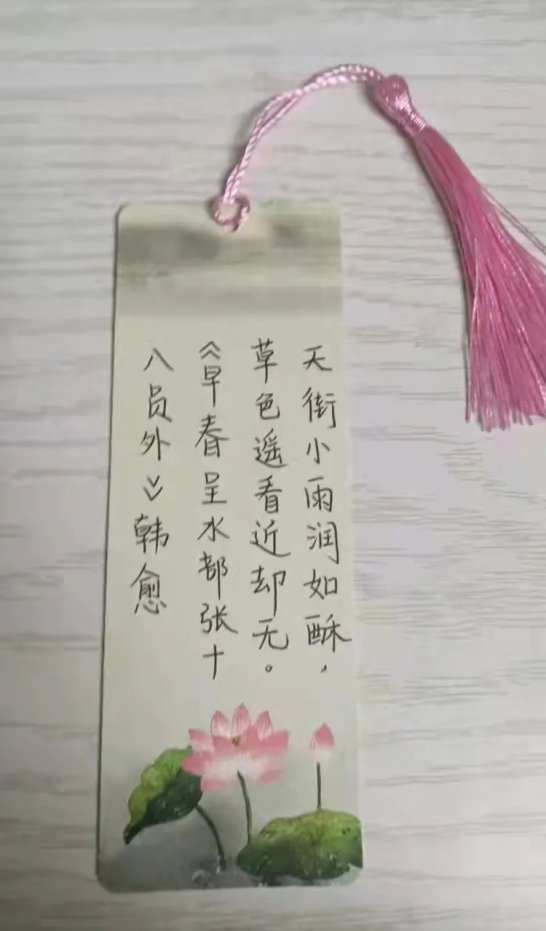 天街小雨润如酥，
草色遥看近却无。
《早春呈水部张十
八员外》韩愈